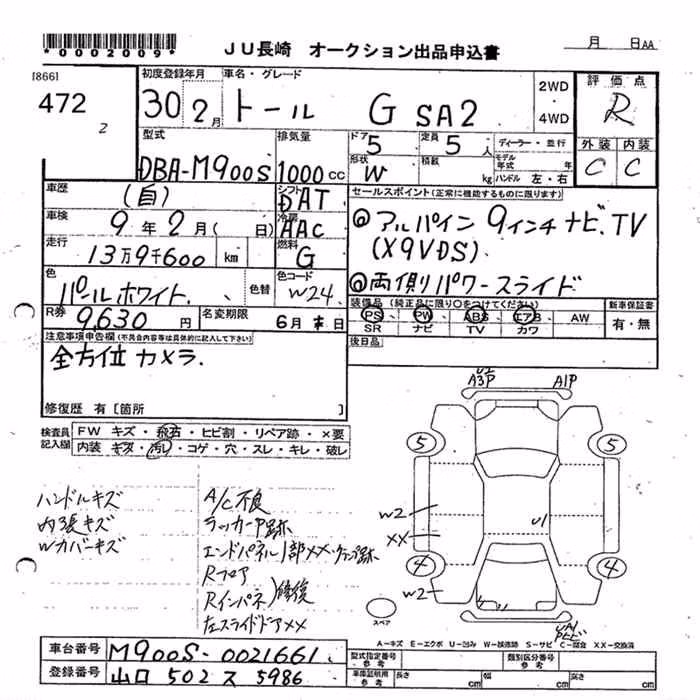 *0002009*
JU長崎 オークション出品申込書
月 日AA
[866]
472
2
初度登録年月
30 2月
車名・グレード
トール G SA2
2WD
・
4WD
評価点
R
外装 内装
C C
型式
DBA-M900S
排気量
1000 cc
ドア
5
定員
5人
形状
W
積載
ディーラー・並行
モデル年式 年
ハンドル 左・右
車歴
(自)
シフト
DAT
セールスポイント(正常に機能するものに限ります)
車検
9年 2月( 日)
冷房
AAC
◎アルパイン 9インチナビ.TV
(X9VDS)
走行
13万9千600 km
燃料
G
◎両側パワースライド
色
パールホワイト.
色替
色コード
W24
装備品(純正品に限り○をつけてください)
PS PW ABS エアB AW
SR ナビ TV カワ
新車保証書
有・無
R券 9,630円
名変期限
6月末日
後日品
注意事項申告欄(不具合内容等は具体的に記入して下さい)
全方位カメラ.
修復歴 有[箇所 ]
検査員記入欄
FW キズ・飛石・ヒビ割・リペア跡・×要
内装 キズ・汚レ・コゲ・穴・スレ・キレ・破レ
U2
A3P
A1P
5 5
W2
XX
U1
4 4
W2
U1
スペア
ハンドルキズ
内張キズ
Wカバーキズ
A/C不良
ラッカーP跡
エンドパネル1部XX・クランプ跡
Rフロア
Rインパネ
修復
左スライドドアXX
A-キズ E-エクボ U-凹み W-板修跡 S-サビ C-腐食 XX-交換済
車台番号 M900S-0021661
登録番号 山口 502 ス 5986
型式指定番号 参考
類別区分番号 参考
車庫証明用 参考
長さ cm
幅 cm
高さ cm